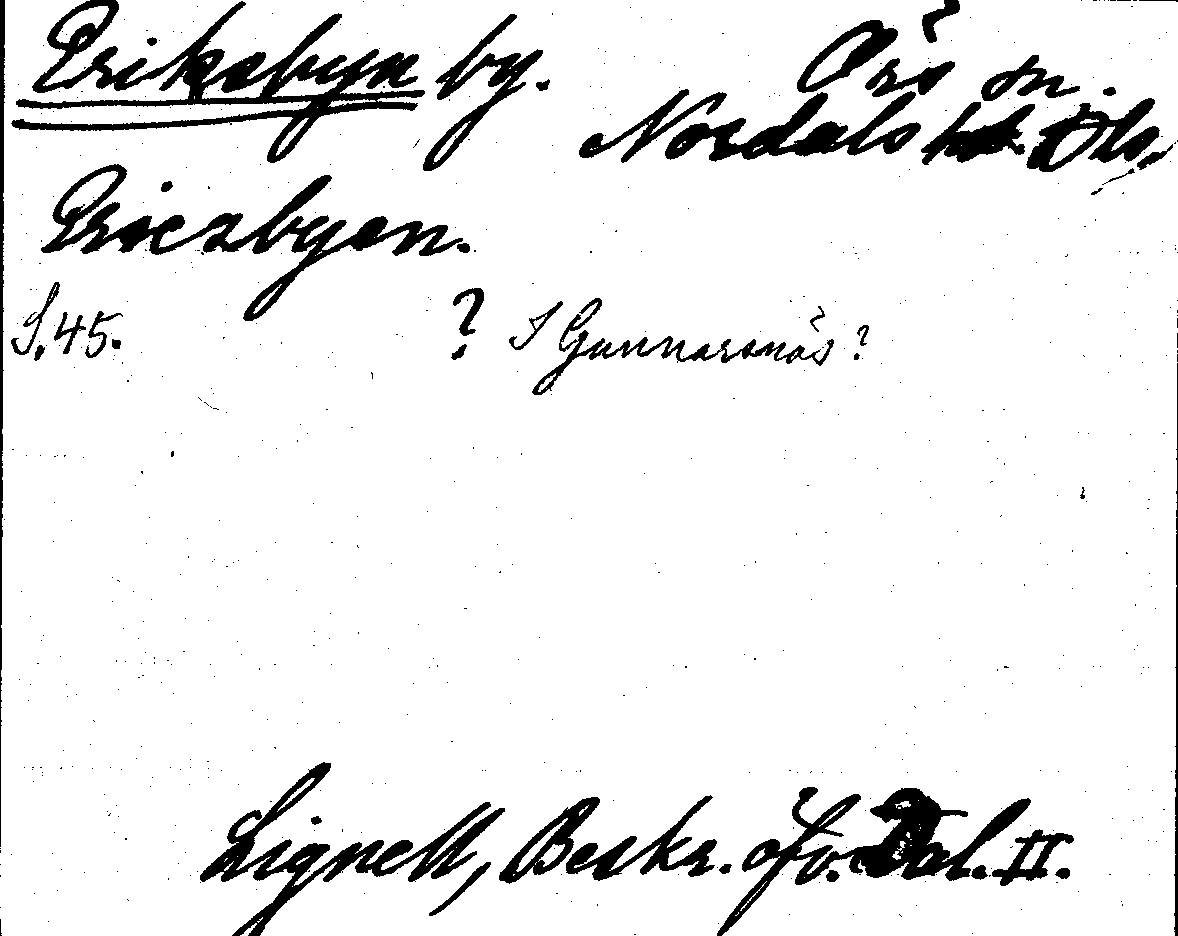 Eriksbyn by. Örs sn.
Nordals hd Dls.
Ericsbyen.
S. 45. ? I Gunnarsnäs?
Lignell, Beskr. öfv. Dal. II.